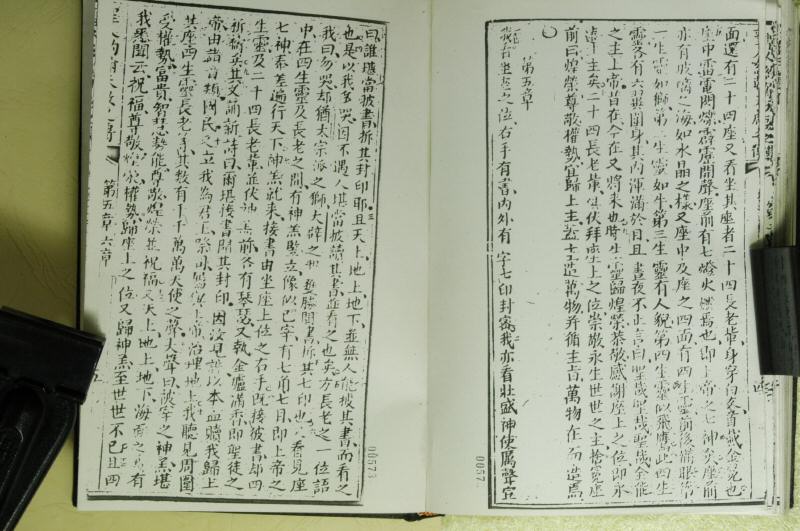 面還有二十四座又看坐其座者二十四長老輩身穿白衣首戴金冕也
座中雷電閃爍霹靂開聲座前有七燈火燃焉也即上帝之七神矣座前
亦有玻璃之海如水晶之樣又座中及座之四面有四生靈前後滿眼
一生靈如獅第二生靈如牛第三生靈有人貌第四生靈似飛鷹此四生
靈各有六翅與周身其內渾滿於目且晝夜不止言曰聖哉聖哉聖哉全能
之主上帝昔在今在又將來也時生靈歸煌榮恭敬感謝座上之位即永
主矣二十四長老輩伏拜座上之位崇敬永生世世之主捨冕座
前曰煌榮尊敬權勢宜歸上主造萬物并循主旨萬物在而造焉
第五章
坐之位右手有書內外有字七印封密我亦看壯盛神使厲聲宣
00572
曰誰堪當披書拆其封印耶且天上地上地下並無人能披其書而看之
也是以我多哭因不遇人堪當披讀其書並看之也矣方長老之一位語
我曰勿哭却猶太宗派之獅大辟之勝開書拆其七印也看見座
中在四生靈及長老之間有神羔豎立像似已宰有七角七目即上帝之
七神奉差遍行天下神羔就來接書由坐座上位之右手既接彼書却四
生靈及二十四長老輩並伏神羔前各有琴瑟又執金爐滿香即聖徒之
祈禱矣其又誦新詩曰爾堪接書開其封印因汝以本血贖我歸上
帝由諸音類國民之立我為君王祭司上帝治理地上我聽見周圍
其座四生靈長老其數有千千萬萬天使之聲大聲曰被宰之神羔堪
受權勢富貴智慧勢能尊敬煌榮並祝福又天上地上地下海有
我悉聞云祝福尊敬煌榮權勢歸座上之位又歸神羔至世世不已且四
第五章六章
0057